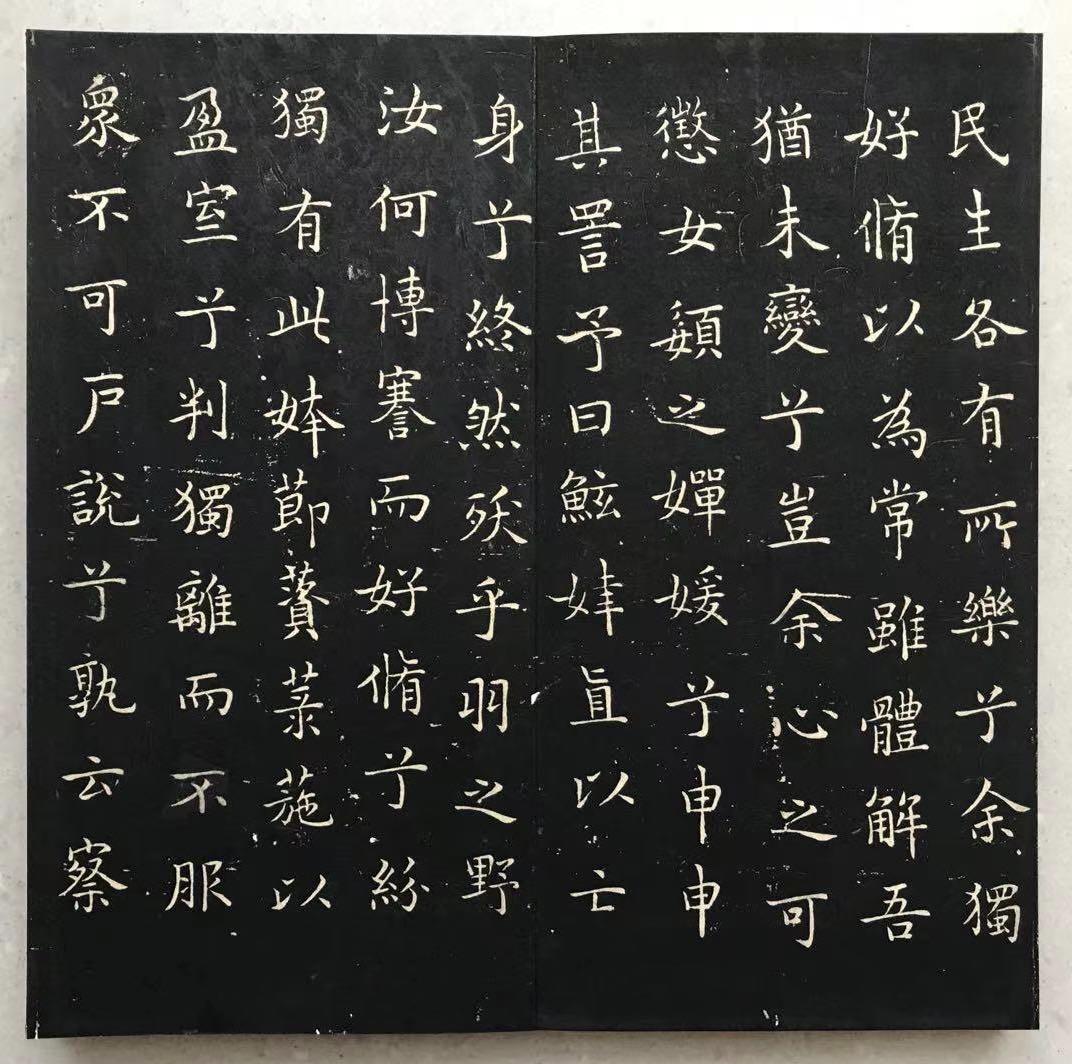 民生各有所樂兮余獨
好脩以為常雖體解吾
猶未變兮豈余心之可
懲女嬃之嬋媛兮申申
其詈予曰鮌婞直以亡
身兮終然殀乎羽之野
汝何博謇而好脩兮紛
獨有此姱節薋菉葹以
盈室兮判獨離而不服
衆不可户說兮孰云察